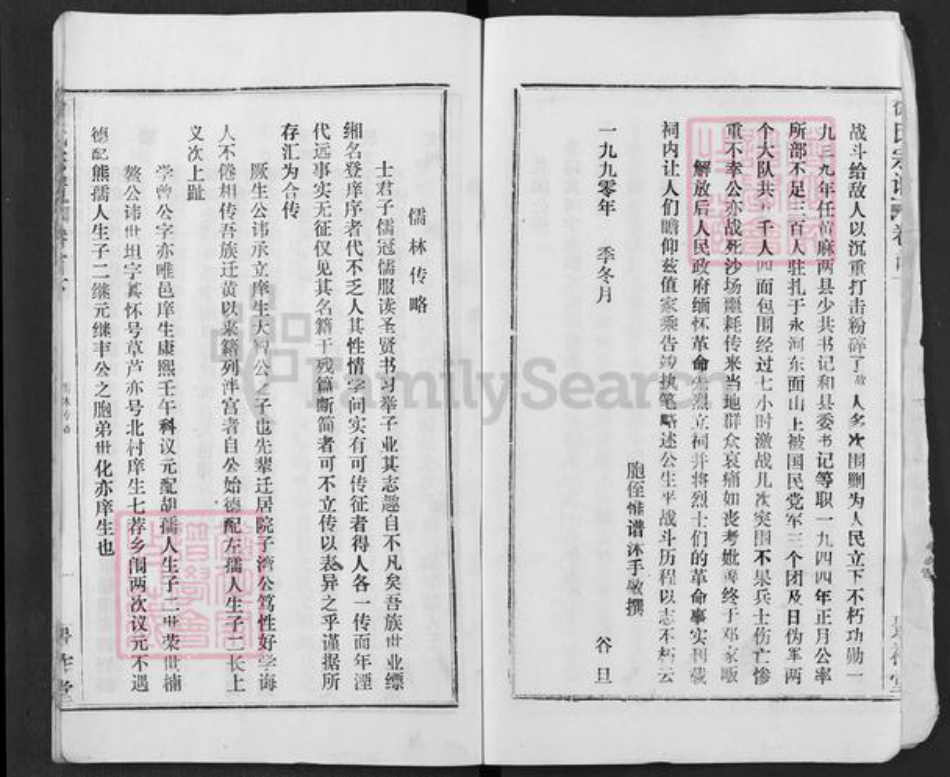 战斗给敌人以沉重打击粉碎了敌人多次围剿为人民立下不朽功勋一
九三九年任黄麻两县少共书记和县委书记等职一九四四年正月公率
所部不足三百人驻扎于永河东面山上被国民党军三个团及日伪军两
个大队共 千人四面包围经过七小时激战几次突围不果兵士伤亡惨
重不幸公亦战死沙场噩耗传来当地群众哀痛如丧考妣 终于邓家畈
解放后人民政府缅怀革命先烈立祠并将烈士们的革命事实刊载
祠内让人们瞻仰兹值家乘告竣执笔略述公生平战斗历程以志不朽云
胞侄惟谱沐手敬撰
一九九零年 季冬月 谷旦
儒林传略
士君子儒冠儒服读圣贤书习举子业其志趣自不凡矣吾族世业缥
缃名登庠序者代不乏人其性情学问实有可传征者得人各一传而年湮
代远事实无征仅见其名籍于残篇断简者可不立传以表异之乎谨据所
存汇为合传
厥生公讳承立庠生大智公之子也先辈迁居院子湾公笃性好学诲
人不倦相传吾族迁黄以来籍列泮宫者自公始德配左孺人生子二长上
义次上趾
学曾公字亦唯邑庠生康熙壬午科议元配胡孺人生子二世荣世楠
鳌公讳世坦字 怀号草芦亦号北村庠生七荐乡闱两次议元不遇
德配熊孺人生子二继元继丰公之胞弟世化亦庠生也